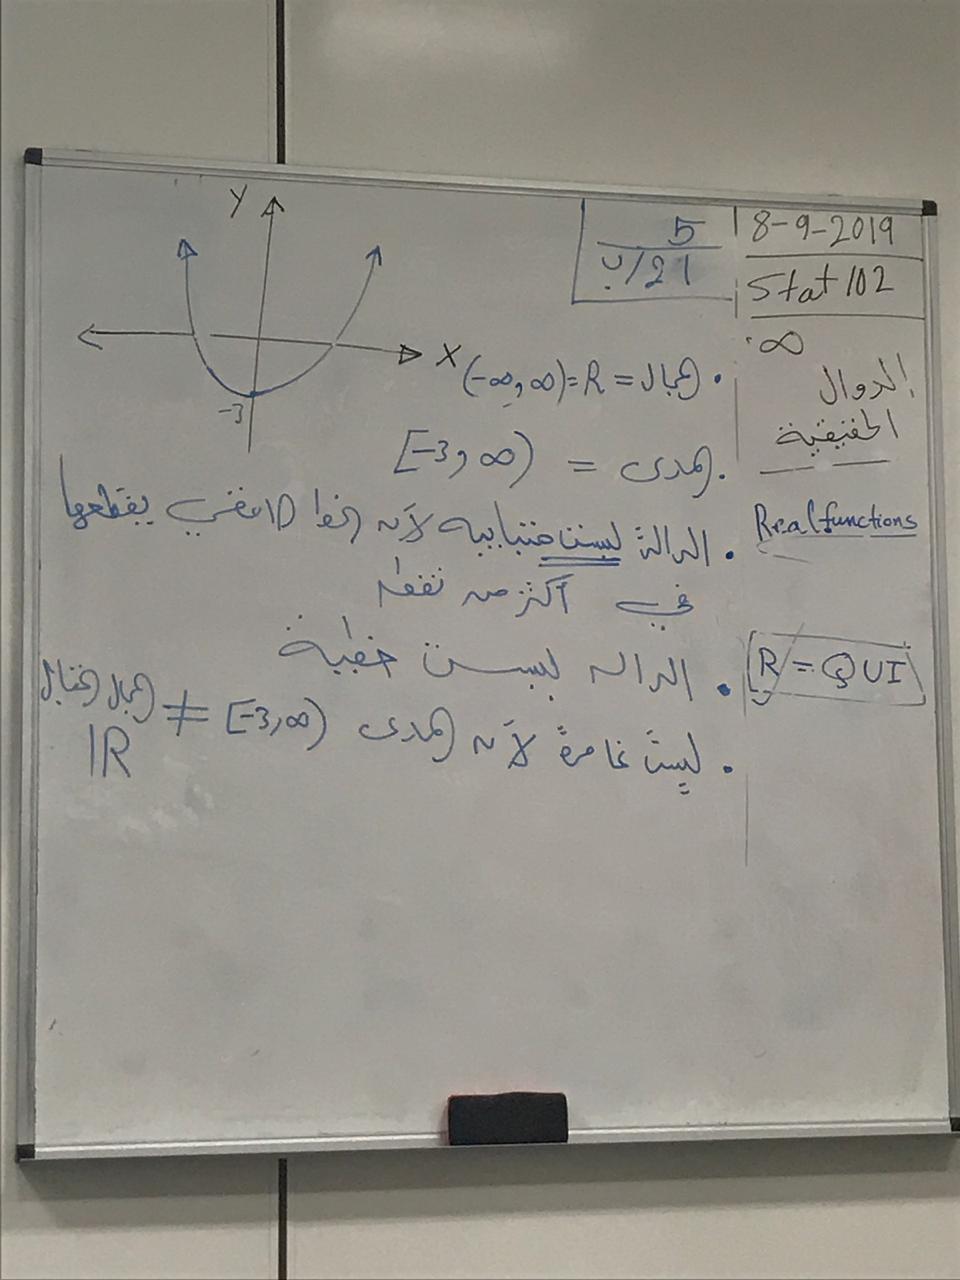 8-9-2019
Stat 102
∞
الدوال
الحقيقية
Real functions
R = Q U I
5
21/ب
Y
X
-3
. المجال = R = (-∞, ∞)
. المدى = [-3, ∞)
. الدالة ليست متباينه لأنه الخط الافقي يقطعها
في أكثر من نقطه
. الداله ليست خطية
. ليست غامرة لأنه المدى [-3, ∞) ≠ المجال المقابل
IR